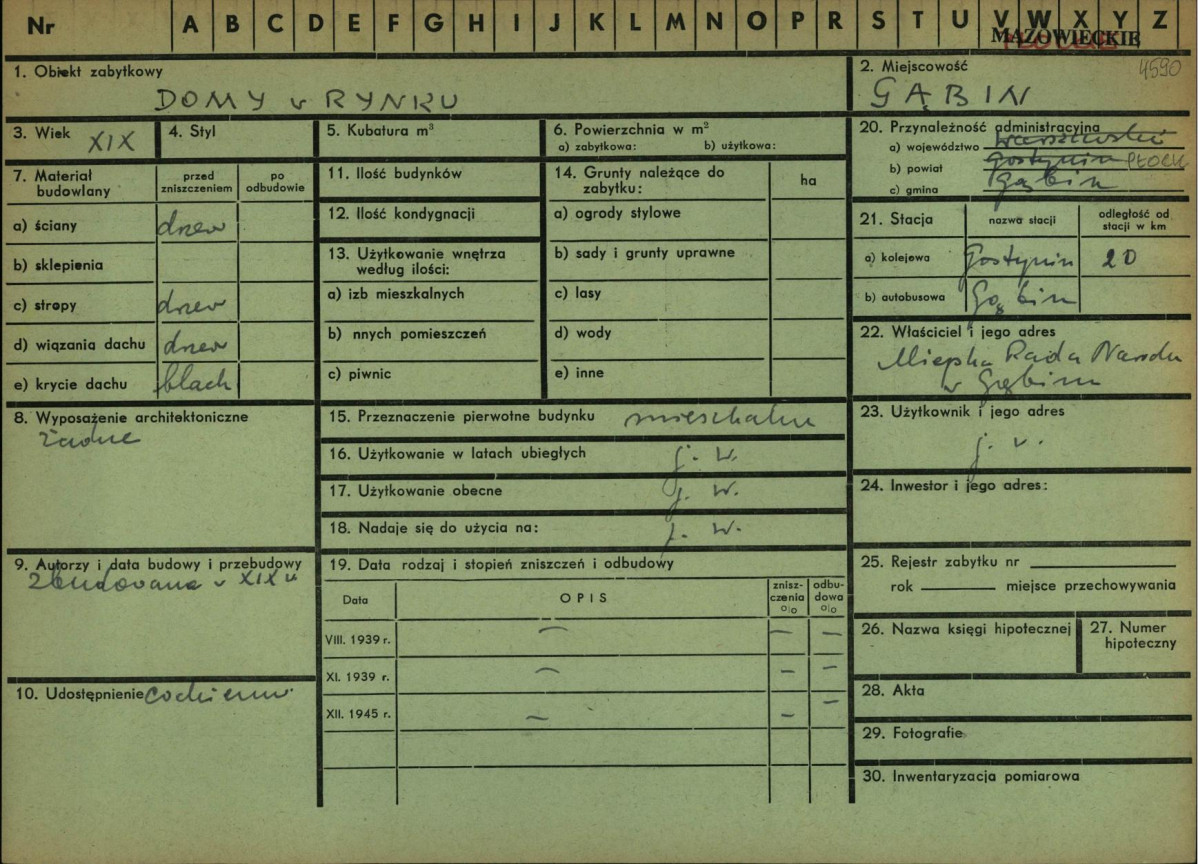 Nr A B C D E F G H I J K L M N O P R S T U V W X Y Z
MAZOWIECKIE
4590
1. Obiekt zabytkowy
DOMY w RYNKU
2. Miejscowość
GĄBIN
3. Wiek XIX
4. Styl
5. Kubatura m³
6. Powierzchnia w m²
a) zabytkowa: b) użytkowa:
20. Przynależność administracyjna
a) województwo warszawskie
b) powiat Gostynin PŁOCK
c) gmina Gąbin
7. Materiał budowlany
przed zniszczeniem
po odbudowie
a) ściany drzew
b) sklepienia
c) stropy drzew
d) wiązania dachu drzew
e) krycie dachu blach
11. Ilość budynków
12. Ilość kondygnacji
13. Użytkowanie wnętrza
według ilości:
a) izb mieszkalnych
b) nnych pomieszczeń
c) piwnic
14. Grunty należące do
zabytku:
ha
a) ogrody stylowe
b) sady i grunty uprawne
c) lasy
d) wody
e) inne
21. Stacja
nazwa stacji
odległość od
stacji w km
a) kolejowa Gostynin 20
b) autobusowa Gąbin
22. Właściciel i jego adres
Miejska Rada Narodu
w Gąbinie
8. Wyposażenie architektoniczne
żadne
15. Przeznaczenie pierwotne budynku mieszkalne
16. Użytkowanie w latach ubiegłych j. w.
17. Użytkowanie obecne j. w.
18. Nadaje się do użycia na: j. w.
23. Użytkownik i jego adres
j. w.
24. Inwestor i jego adres:
9. Autorzy i data budowy i przebudowy
Zbudowana w XIX w
19. Data rodzaj i stopień zniszczeń i odbudowy
Data
OPIS
znisz-
czenia
o|o
odbu-
dowa
o|o
VIII. 1939 r. — — —
XI. 1939 r. — — —
XII. 1945 r. — — —
10. Udostępnienie codzienni
25. Rejestr zabytku nr
rok miejsce przechowywania
26. Nazwa księgi hipotecznej
27. Numer
hipoteczny
28. Akta
29. Fotografie
30. Inwentaryzacja pomiarowa